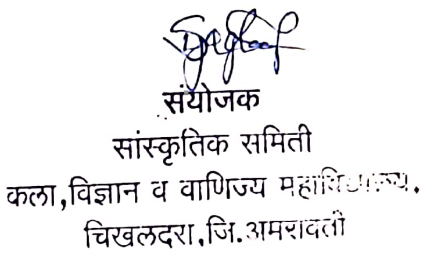 संयोजक
सांस्कृतिक समिती
कला,विज्ञान व वाणिज्य महाविद्यालय.
चिखलदरा,जि.अमरावती